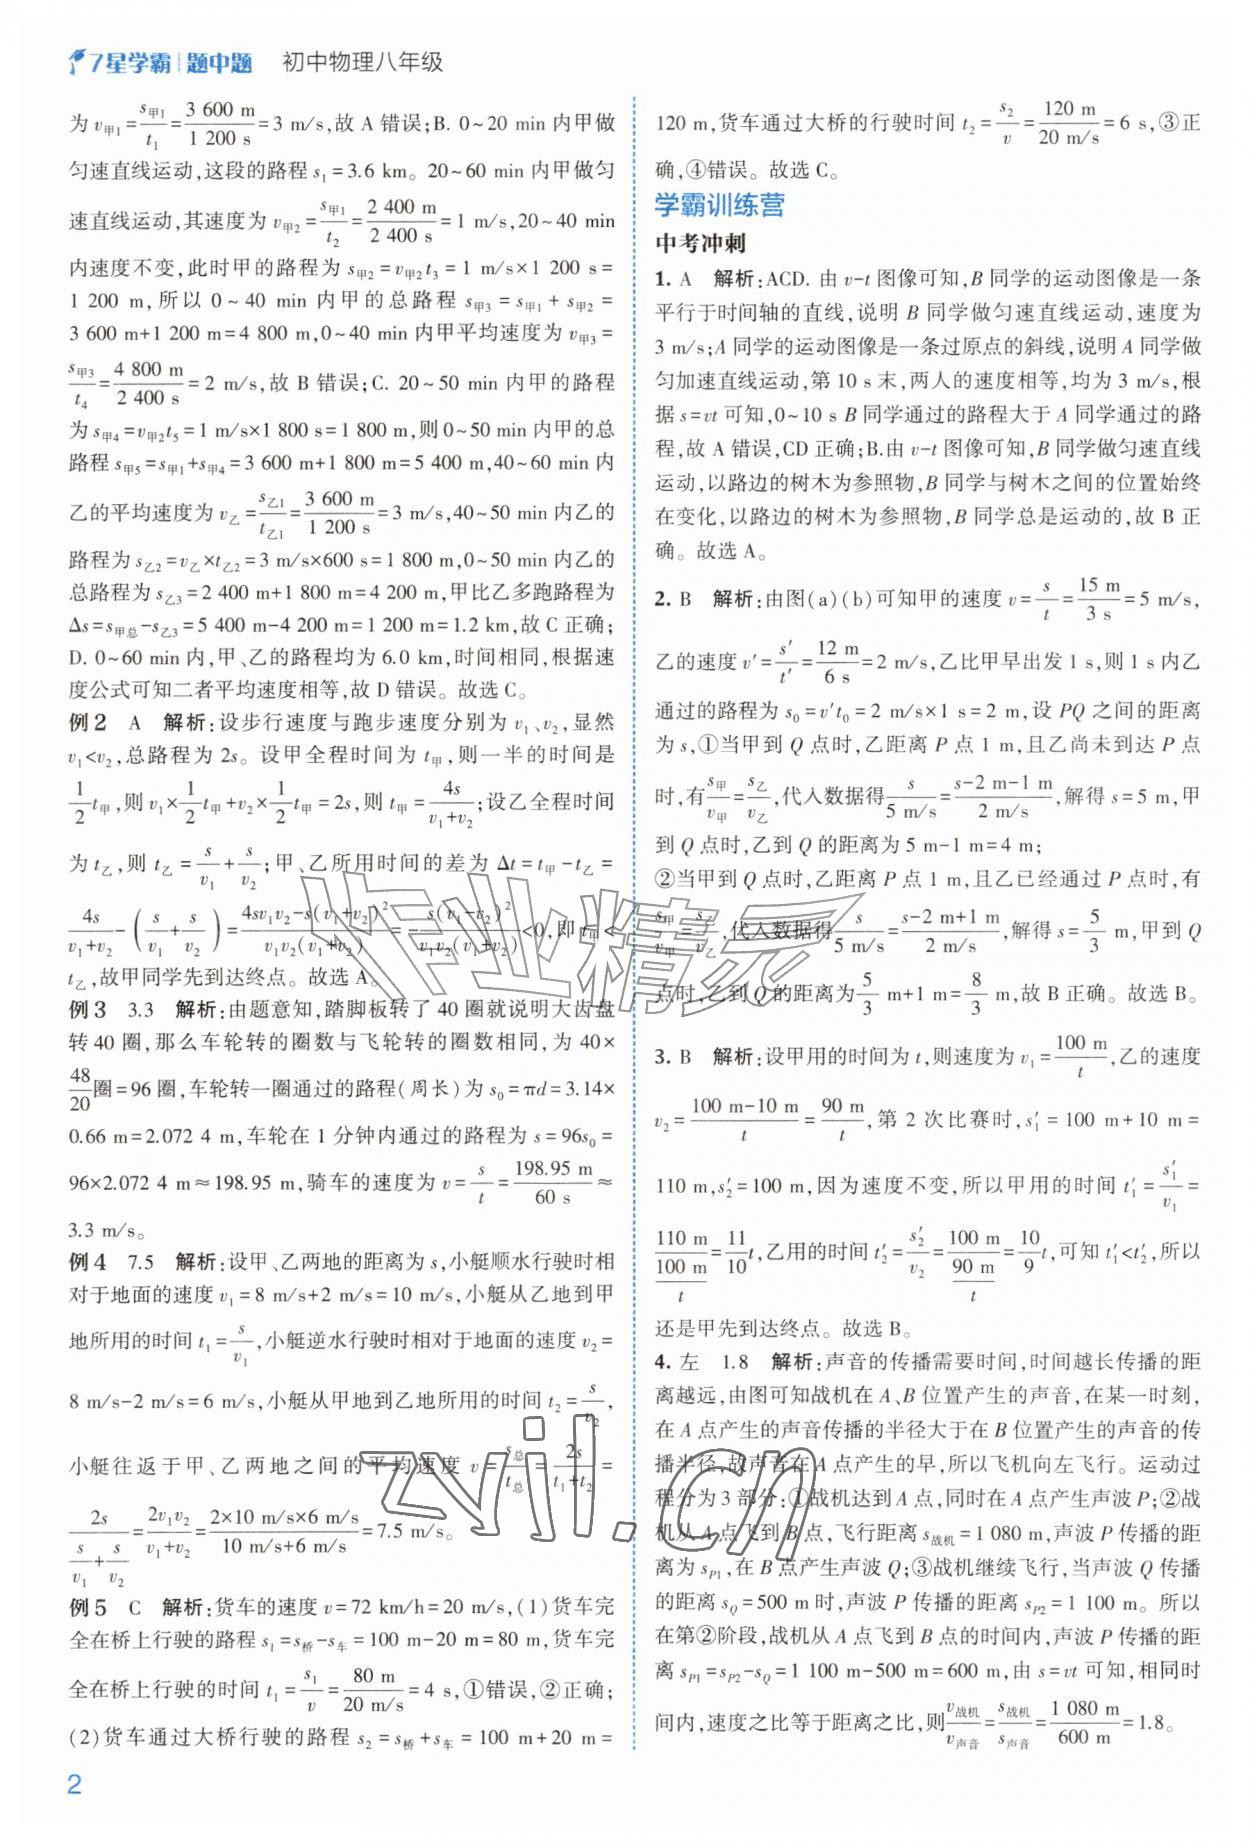 7星学霸|题中题 初中物理八年级
为v甲1=s甲1/t1=3 600 m/1 200 s=3 m/s,故 A 错误;B. 0~20 min 内甲做
匀速直线运动,这段的路程 s1=3.6 km。20~60 min 内甲做匀
速直线运动,其速度为 v甲2=s甲1/t2=2 400 m/2 400 s=1 m/s,20~40 min
内速度不变,此时甲的路程为 s甲2=v甲2t3=1 m/s×1 200 s=
1 200 m,所以 0~40 min 内甲的总路程 s甲3=s甲1+s甲2=
3 600 m+1 200 m=4 800 m,0~40 min 内甲平均速度为 v甲3=
s甲3/t4=4 800 m/2 400 s=2 m/s,故 B 错误;C. 20~50 min 内甲的路程
为 s甲4=v甲2t5=1 m/s×1 800 s=1 800 m,则 0~50 min 内甲的总
路程 s甲5=s甲1+s甲4=3 600 m+1 800 m=5 400 m,40~60 min 内
乙的平均速度为 v乙=s乙1/t乙1=3 600 m/1 200 s=3 m/s,40~50 min 内乙的
路程为 s乙2=v乙×t乙2=3 m/s×600 s=1 800 m,0~50 min 内乙的
总路程为 s乙3=2 400 m+1 800 m=4 200 m,甲比乙多跑路程为
Δs=s甲总-s乙3=5 400 m-4 200 m=1 200 m=1.2 km,故 C 正确;
D. 0~60 min 内,甲、乙的路程均为 6.0 km,时间相同,根据速
度公式可知二者平均速度相等,故 D 错误。故选 C。
例2 A 解析:设步行速度与跑步速度分别为 v1、v2,显然
v1<v2,总路程为 2s。设甲全程时间为 t甲,则一半的时间是
1/2t甲,则 v1×1/2t甲+v2×1/2t甲=2s,则 t甲=4s/(v1+v2);设乙全程时间
为 t乙,则 t乙=s/v1+s/v2;甲、乙所用时间的差为 Δt=t甲-t乙=
4s/(v1+v2)-(s/v1+s/v2)=(4sv1v2-s(v1+v2)²)/(v1v2(v1+v2))=-s(v1-v2)²/(v1v2(v1+v2))<0,即 t甲<
t乙,故甲同学先到达终点。故选 A。
例3 3.3 解析:由题意知,踏脚板转了 40 圈就说明大齿盘
转 40 圈,那么车轮转的圈数与飞轮转的圈数相同,为 40×
48/20圈=96 圈,车轮转一圈通过的路程(周长)为 s0=πd=3.14×
0.66 m=2.072 4 m,车轮在 1 分钟内通过的路程为 s=96s0=
96×2.072 4 m≈198.95 m,骑车的速度为 v=s/t=198.95 m/60 s≈
3.3 m/s。
例4 7.5 解析:设甲、乙两地的距离为 s,小艇顺水行驶时相
对于地面的速度 v1=8 m/s+2 m/s=10 m/s,小艇从乙地到甲
地所用的时间 t1=s/v1,小艇逆水行驶时相对于地面的速度 v2=
8 m/s-2 m/s=6 m/s,小艇从甲地到乙地所用的时间 t2=s/v2,
小艇往返于甲、乙两地之间的平均速度 v=s总/t总=2s/(t1+t2)=
2s/(s/v1+s/v2)=2v1v2/(v1+v2)=2×10 m/s×6 m/s/(10 m/s+6 m/s)=7.5 m/s。
例5 C 解析:货车的速度 v=72 km/h=20 m/s,(1)货车完
全在桥上行驶的路程 s1=s桥-s车=100 m-20 m=80 m,货车完
全在桥上行驶的时间 t1=s1/v=80 m/20 m/s=4 s,①错误,②正确;
(2)货车通过大桥行驶的路程 s2=s桥+s车=100 m+20 m=
120 m,货车通过大桥的行驶时间 t2=s2/v=120 m/20 m/s=6 s,③正
确,④错误。故选 C。
学霸训练营
中考冲刺
1. A 解析:ACD. 由 v-t 图像可知,B 同学的运动图像是一条
平行于时间轴的直线,说明 B 同学做匀速直线运动,速度为
3 m/s;A 同学的运动图像是一条过原点的斜线,说明 A 同学做
匀加速直线运动,第 10 s 末,两人的速度相等,均为 3 m/s,根
据 s=vt 可知,0~10 s B 同学通过的路程大于 A 同学通过的路
程,故 A 错误,CD 正确;B.由 v-t 图像可知,B 同学做匀速直线
运动,以路边的树木为参照物,B 同学与树木之间的位置始终
在变化,以路边的树木为参照物,B 同学总是运动的,故 B 正
确。故选 A。
2. B 解析:由图(a)(b)可知甲的速度 v=s/t=15 m/3 s=5 m/s,
乙的速度 v′=s′/t′=12 m/6 s=2 m/s,乙比甲早出发 1 s,则 1 s 内乙
通过的路程为 s0=v′t0=2 m/s×1 s=2 m,设 PQ 之间的距离
为 s,①当甲到 Q 点时,乙距离 P 点 1 m,且乙尚未到达 P 点
时,有s甲/v甲=s乙/v乙,代入数据得s/5 m/s=(s-2 m-1 m)/2 m/s,解得 s=5 m,甲
到 Q 点时,乙到 Q 的距离为 5 m-1 m=4 m;
②当甲到 Q 点时,乙距离 P 点 1 m,且乙已经通过 P 点时,有
s甲/v甲=s乙/v乙,代入数据得s/5 m/s=(s-2 m+1 m)/2 m/s,解得 s=5/3 m,甲到 Q
点时,乙到 Q 的距离为5/3 m+1 m=8/3 m,故 B 正确。故选 B。
3. B 解析:设甲用的时间为 t,则速度为 v1=100 m/t,乙的速度
v2=(100 m-10 m)/t=90 m/t,第 2 次比赛时,s′1=100 m+10 m=
110 m,s′2=100 m,因为速度不变,所以甲用的时间 t′1=s′1/v1=
110 m/(100 m/t)=11/10t,乙用的时间 t′2=s′2/v2=100 m/(90 m/t)=10/9t,可知 t′1<t′2,所以
还是甲先到达终点。故选 B。
4. 左 1.8 解析:声音的传播需要时间,时间越长传播的距
离越远,由图可知战机在 A、B 位置产生的声音,在某一时刻,
在 A 点产生的声音传播的半径大于在 B 位置产生的声音的传
播半径,故声音在 A 点产生的早,所以飞机向左飞行。运动过
程分为 3 部分:①战机达到 A 点,同时在 A 点产生声波 P;②战
机从 A 点飞到 B 点,飞行距离 s战机=1 080 m,声波 P 传播的距
离为 sP1,在 B 点产生声波 Q;③战机继续飞行,当声波 Q 传播
的距离 sQ=500 m 时,声波 P 传播的距离 sP2=1 100 m。所以
在第②阶段,战机从 A 点飞到 B 点的时间内,声波 P 传播的距
离 sP1=sP2-sQ=1 100 m-500 m=600 m,由 s=vt 可知,相同时
间内,速度之比等于距离之比,则v战机/v声音=s战机/s声音=1 080 m/600 m=1.8。
作业精灵
zyjl.cn
2